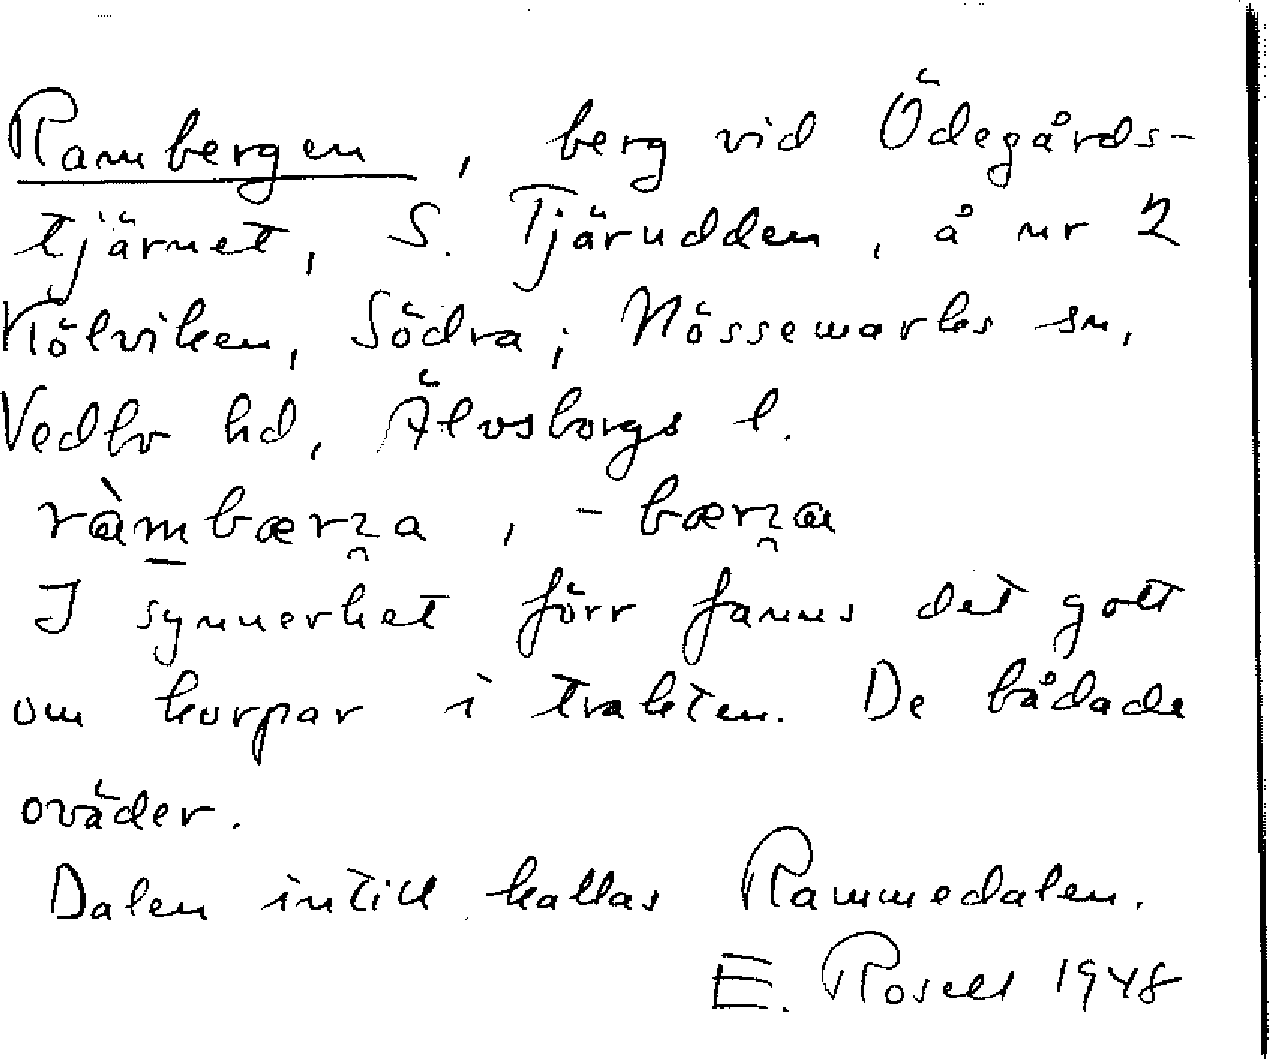 Rambergen, berg vid Ödegårds-
tjärnet, S. Tjärudden, å nr 2
Kölviken, Södra; Nössemarks sn,
Vedbo hd, Älvsborgs l.
ràmbærʒ̑a, -bærʒ̑a
I synnerhet förr fanns det gott
om korpar i trakten. De bådade
oväder.
Dalen intill kallas Rammedalen.
E. Rosell 1948